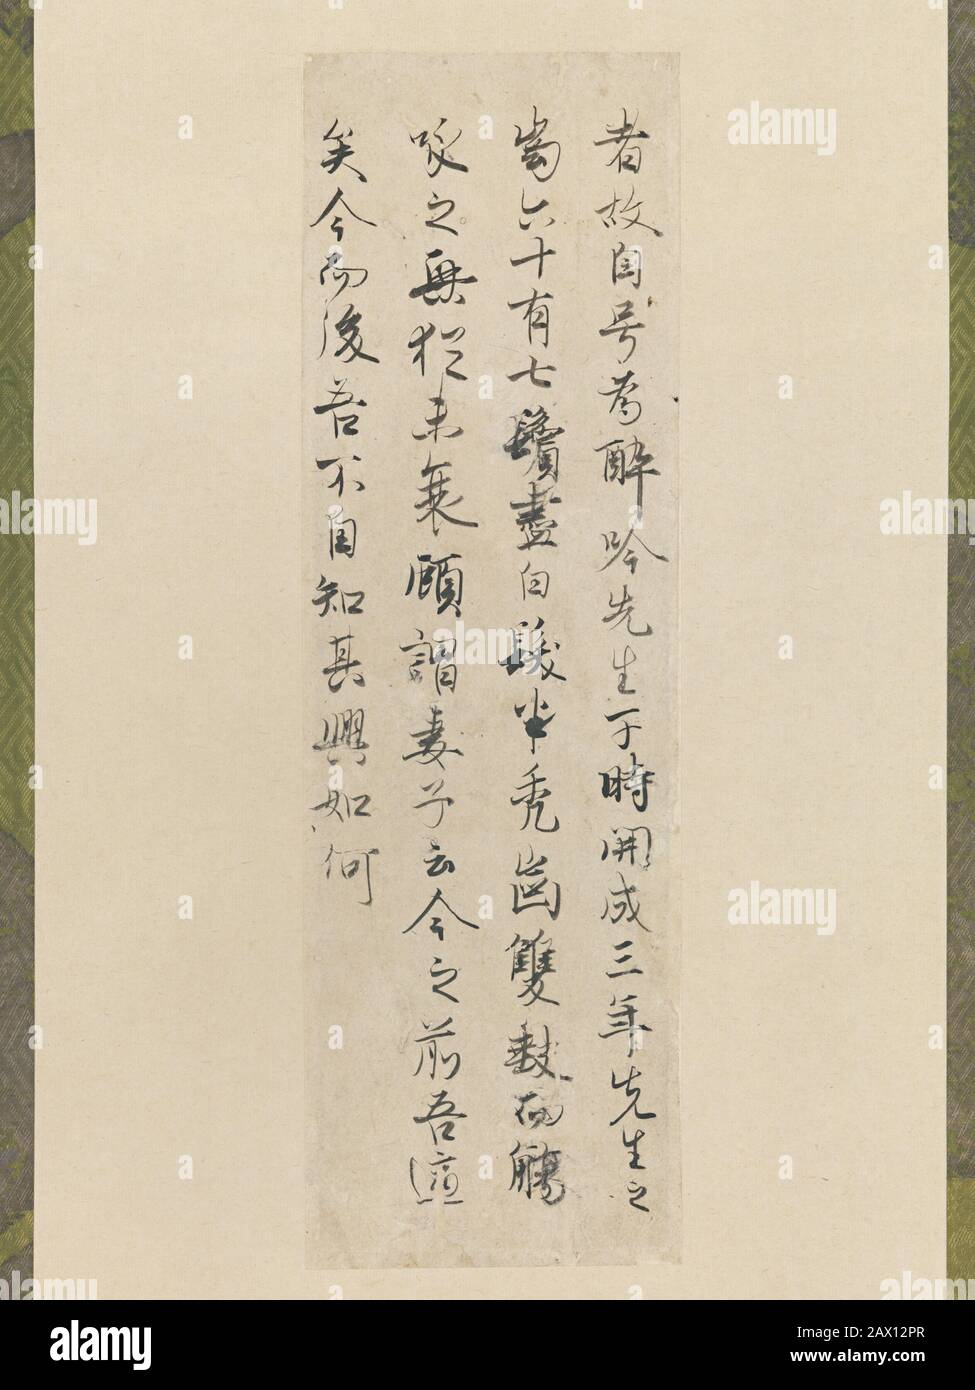 者故自号為酔吟先生于時開成三年先生之
歯六十有七鬢盡白髪半禿歯雙缺而觴
咏之興猶未衰顧謂妻子云今之前吾適
矣今而後吾不自知其興如何
alamy
Image ID: 2AX12PR
www.alamy.com